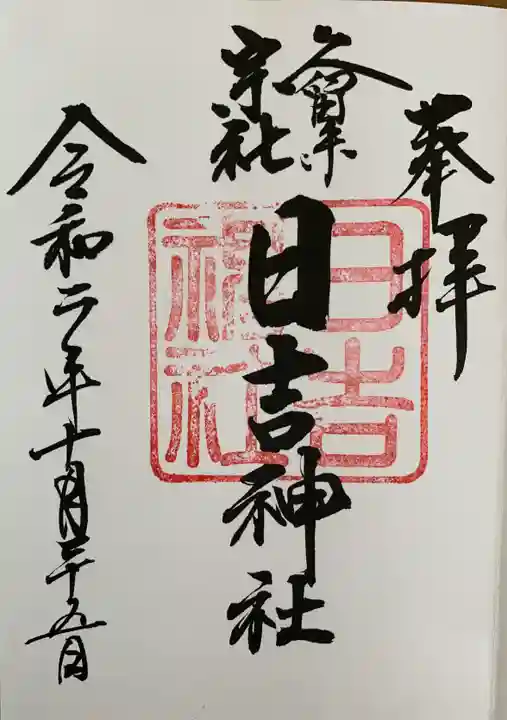 奉拝
久留米
宗社
日吉神社
令和二年十月二十五日
日吉
神社